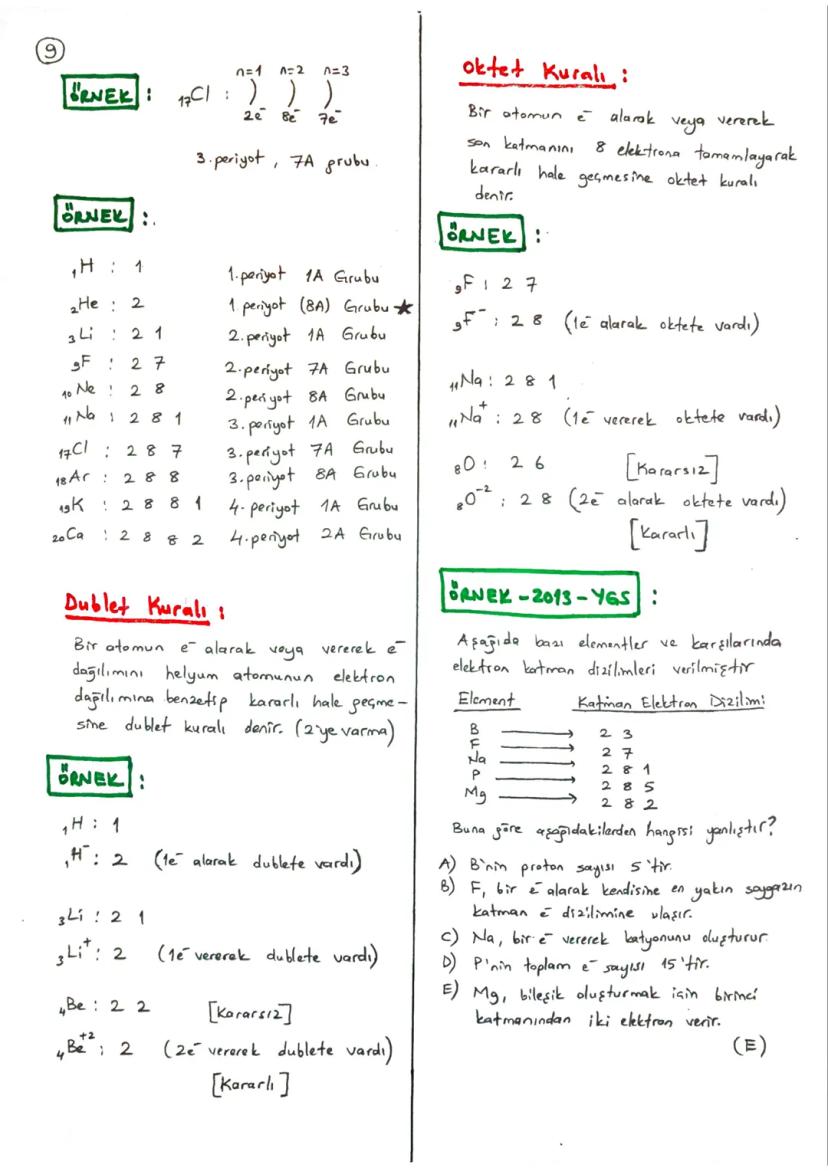 9
ÖRNEK : ₁₇Cl : ) ) )
n=1 n=2 n=3
2e⁻ 8e⁻ 7e⁻
3. periyot , 7A grubu.
ÖRNEK :
₁H : 1 1. periyot 1A Grubu
₂He : 2 1 periyot (8A) Grubu ★
₃Li : 2 1 2. periyot 1A Grubu
₉F : 2 7 2. periyot 7A Grubu
₁₀Ne : 2 8 2. periyot 8A Grubu
₁₁Na : 2 8 1 3. periyot 1A Grubu
₁₇Cl : 2 8 7 3. periyot 7A Grubu
₁₈Ar : 2 8 8 3. periyot 8A Grubu
₁₉K : 2 8 8 1 4. periyot 1A Grubu
₂₀Ca : 2 8 8 2 4. periyot 2A Grubu
Dublet Kuralı :
Bir atomun e⁻ alarak veya vererek e⁻
dağılımını helyum atomunun elektron
dağılımına benzetip kararlı hale geçme-
sine dublet kuralı denir. (2'ye varma)
ÖRNEK :
₁H : 1
₁H⁻ : 2 (1e⁻ alarak dublete vardı)
₃Li : 2 1
₃Li⁺ : 2 (1e⁻ vererek dublete vardı)
₄Be : 2 2 [Kararsız]
₄Be⁺² : 2 (2e⁻ vererek dublete vardı)
[Kararlı]
Oktet Kuralı :
Bir atomun e⁻ alarak veya vererek
son katmanını 8 elektrona tamamlayarak
kararlı hale geçmesine oktet kuralı
denir.
ÖRNEK :
₉F : 2 7
₉F⁻ : 2 8 (1e⁻ alarak oktete vardı)
₁₁Na : 2 8 1
₁₁Na⁺ : 2 8 (1e⁻ vererek oktete vardı)
₈O : 2 6 [Kararsız]
₈O⁻² : 2 8 (2e⁻ alarak oktete vardı)
[Kararlı]
ÖRNEK - 2013 - YGS :
Aşağıda bazı elementler ve karşılarında
elektron katman dizilimleri verilmiştir
Element Katman Elektron Dizilimi
B → 2 3
F → 2 7
Na → 2 8 1
P → 2 8 5
Mg → 2 8 2
Buna göre aşağıdakilerden hangisi yanlıştır?
A) B'nin proton sayısı 5'tir.
B) F, bir e⁻ alarak kendisine en yakın soygazın
katman e⁻ dizilimine ulaşır.
C) Na, bir e⁻ vererek katyonunu oluşturur.
D) P'nin toplam e⁻ sayısı 15'tir.
E) Mg, bileşik oluşturmak için birinci
katmanından iki elektron verir.
(E)